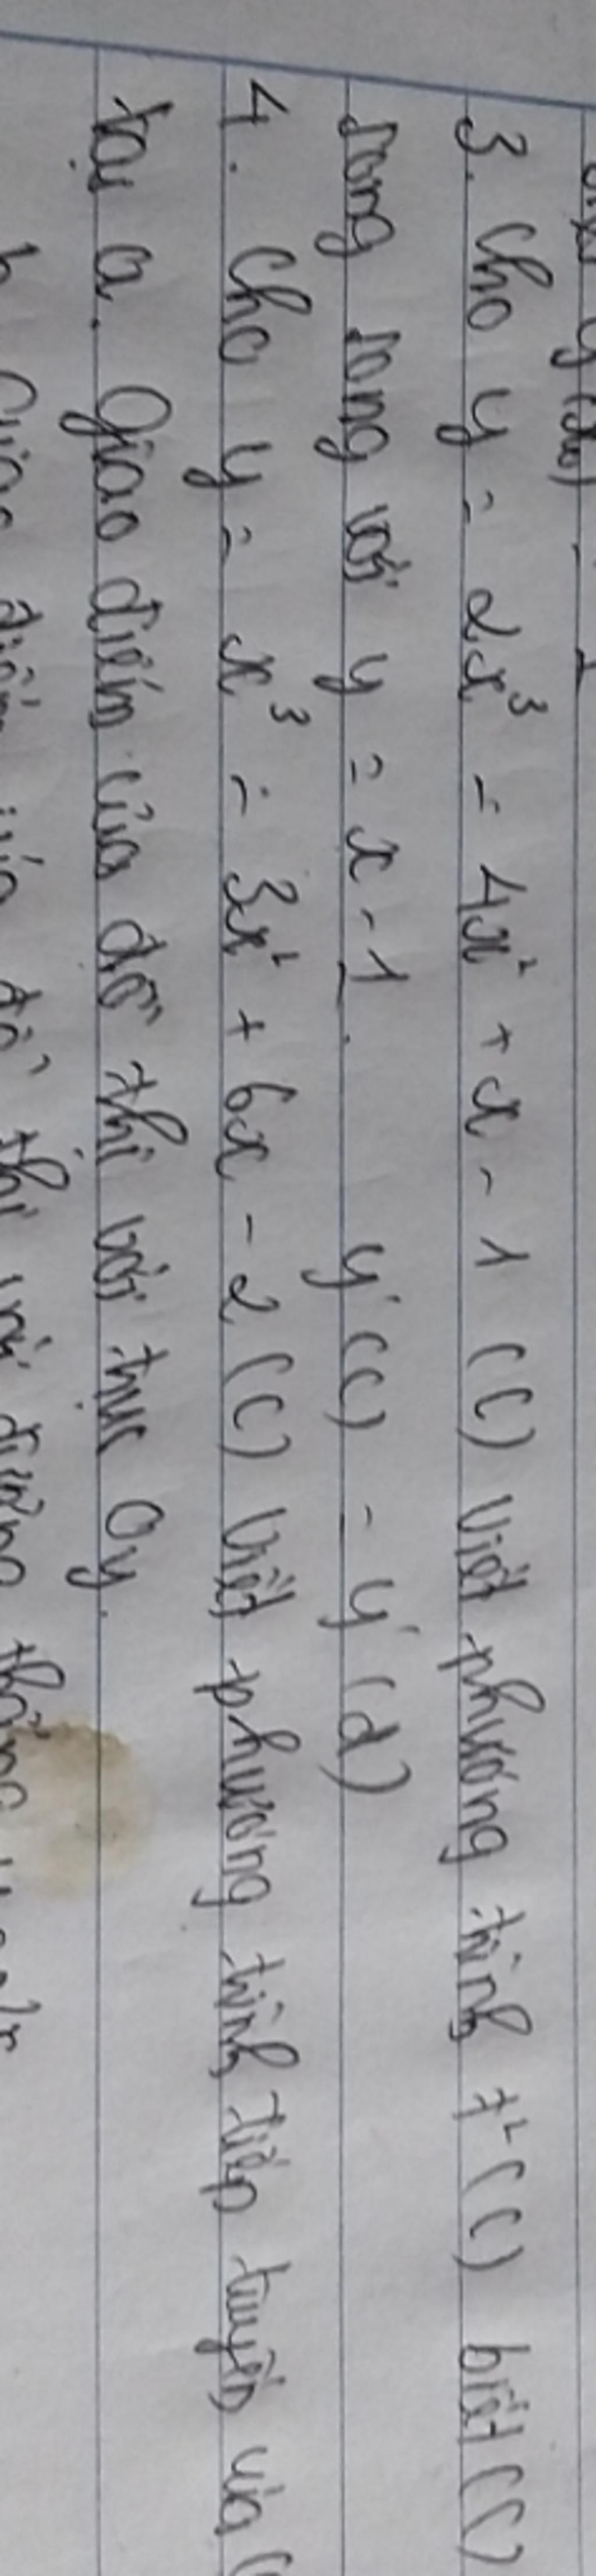 3. Cho y = 2x³ - 4x² + x - 1 (C) Viết phương trình t² (C) biết (C)
song song với y = x - 1. y'(C) = y'(d)
4. Cho y = x³ - 3x² + 6x - 2 (C) Viết phương trình tiếp tuyến của (
tại a. Giao điểm của đồ thị với trục Oy.
b. Giao điểm của đồ thị với đường thẳng